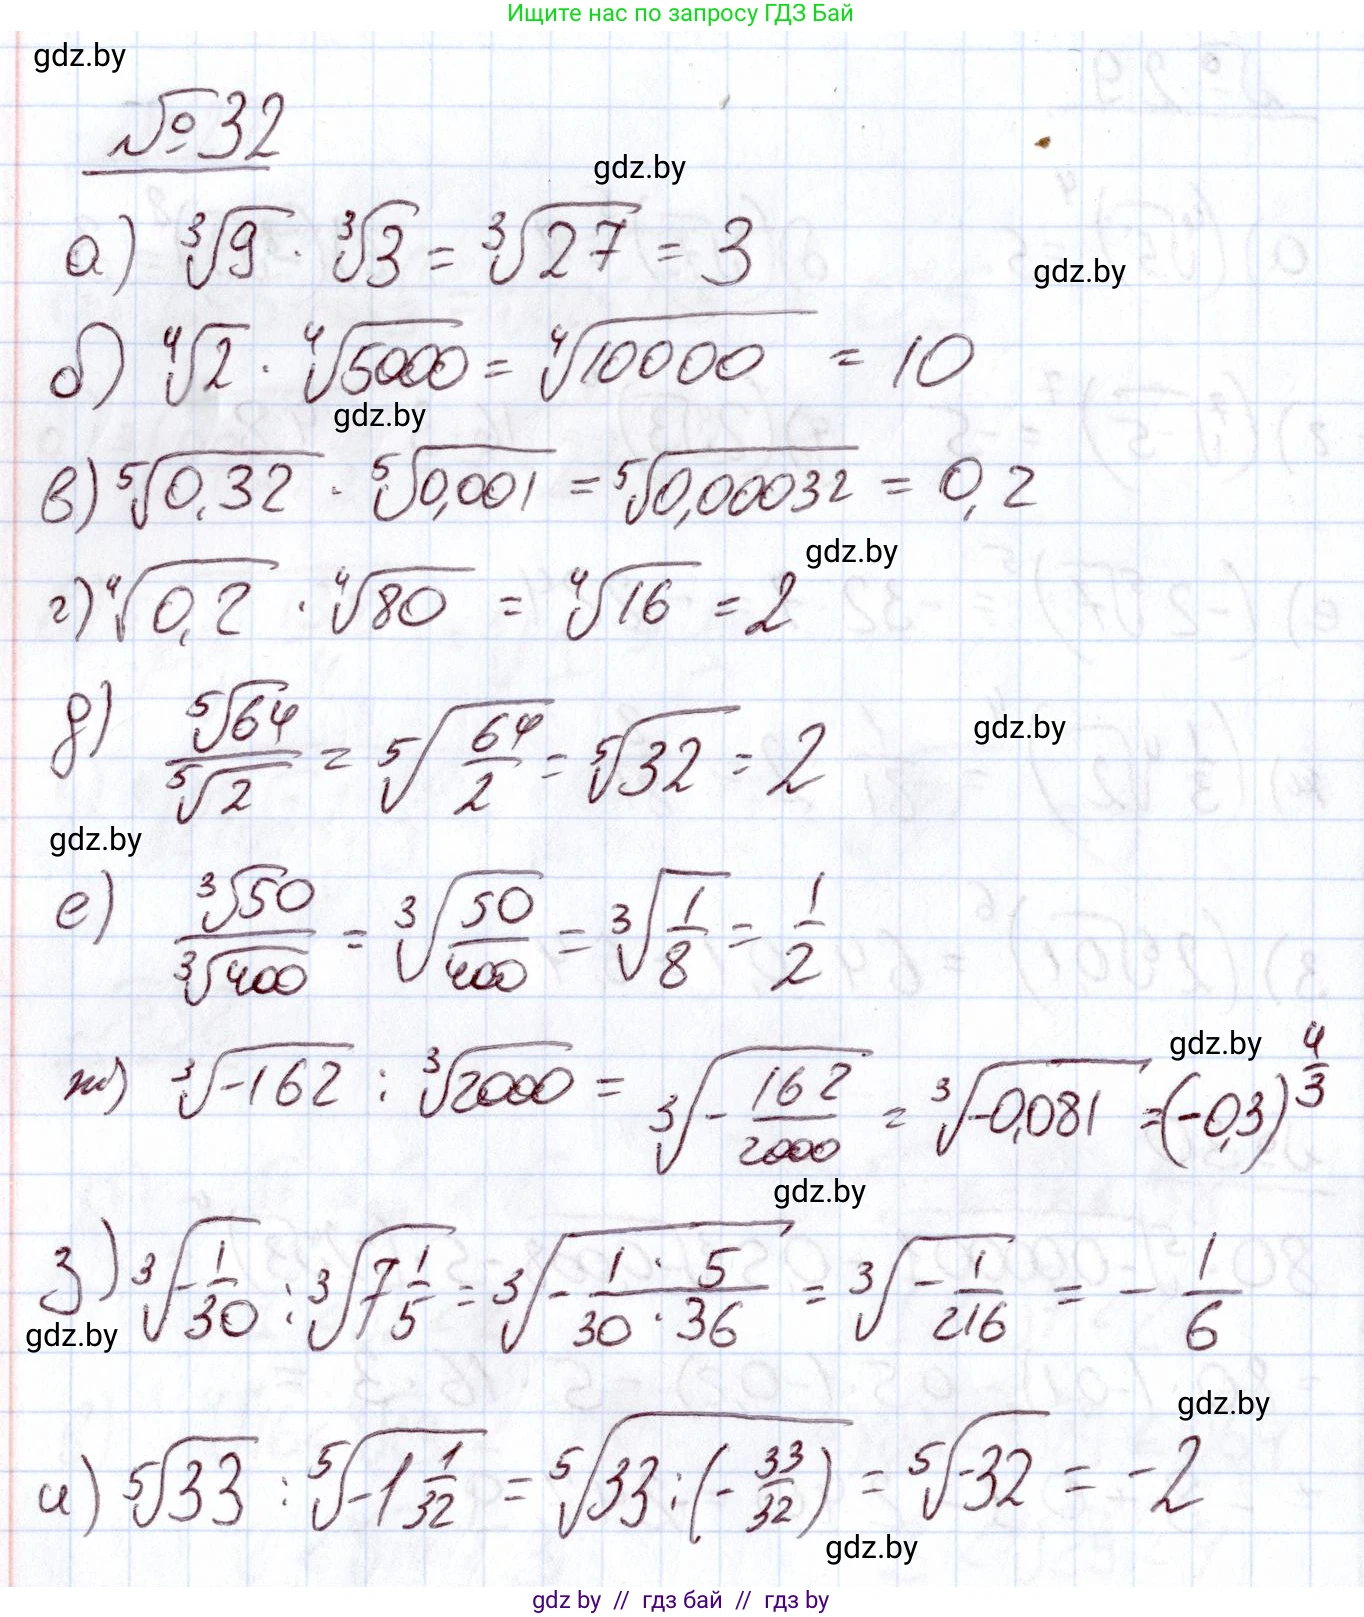 Ищите нас по запросу ГДЗ Бай
gdz.by
№ 32
gdz.by
а) ∛9 · ∛3 = ∛27 = 3
gdz.by
б) ∜2 · ∜5000 = ∜10000 = 10
gdz.by
в) ⁵√0,32 · ⁵√0,001 = ⁵√0,00032 = 0,2
gdz.by
г) ∜0,2 · ∜80 = ∜16 = 2
д) ⁵√64 / ⁵√2 = ⁵√(64/2) = ⁵√32 = 2
gdz.by
gdz.by
е) ∛50 / ∛400 = ∛(50/400) = ∛(1/8) = 1/2
gdz.by
ж) ∛-162 : ∛2000 = ∛(-162/2000) = ∛-0,081 = (-0,3)^(4/3)
gdz.by
з) ∛(-1/30) : ∛(7 1/5) = ∛(-(1 · 5)/(30 · 36)) = ∛(-1/216) = -1/6
gdz.by
gdz.by
и) ⁵√33 : ⁵√(-1 1/32) = ⁵√(33 : (-33/32)) = ⁵√-32 = -2
gdz.by
gdz by // гдз бай // гдз by